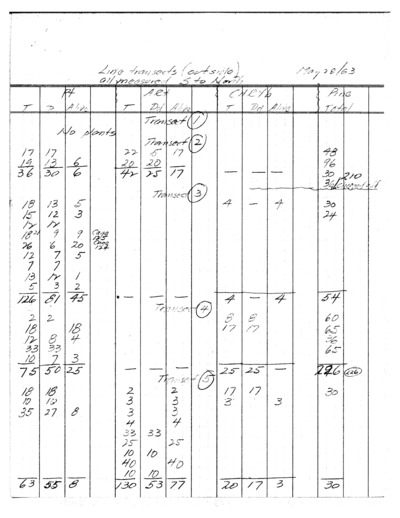 Line transects (outside) May 28/63
all measured S to North
Pt ARt CHRYb Pine
T D Alive T Dd Alive T Dd Alive Total
Transect 1
No plants
Transect 2
17 17 22 5 17 48
19 13 6 20 20 96
36 30 6 42 25 17 — — — 30 210
36
Transect 3
18 13 5 4 - 4 30
15 12 3 24
12 12
18 9 9
26 6 20
12 7 5
7 7
13 12 1
5 3 2
126 81 45 — — — 4 — 4 54
Transect 4
2 2 8 8 60
18 18 17 17 65
12 8 4 36
33 33 65
10 7 3
75 50 25 — — — 25 25 — 226
Transect 5
18 18 2 2 17 17 30
10 10 3 3 3 3
35 27 8 3 3
4 4
33 33
25 25
10 10
40 40
10 10
63 55 8 130 53 77 20 17 3 30